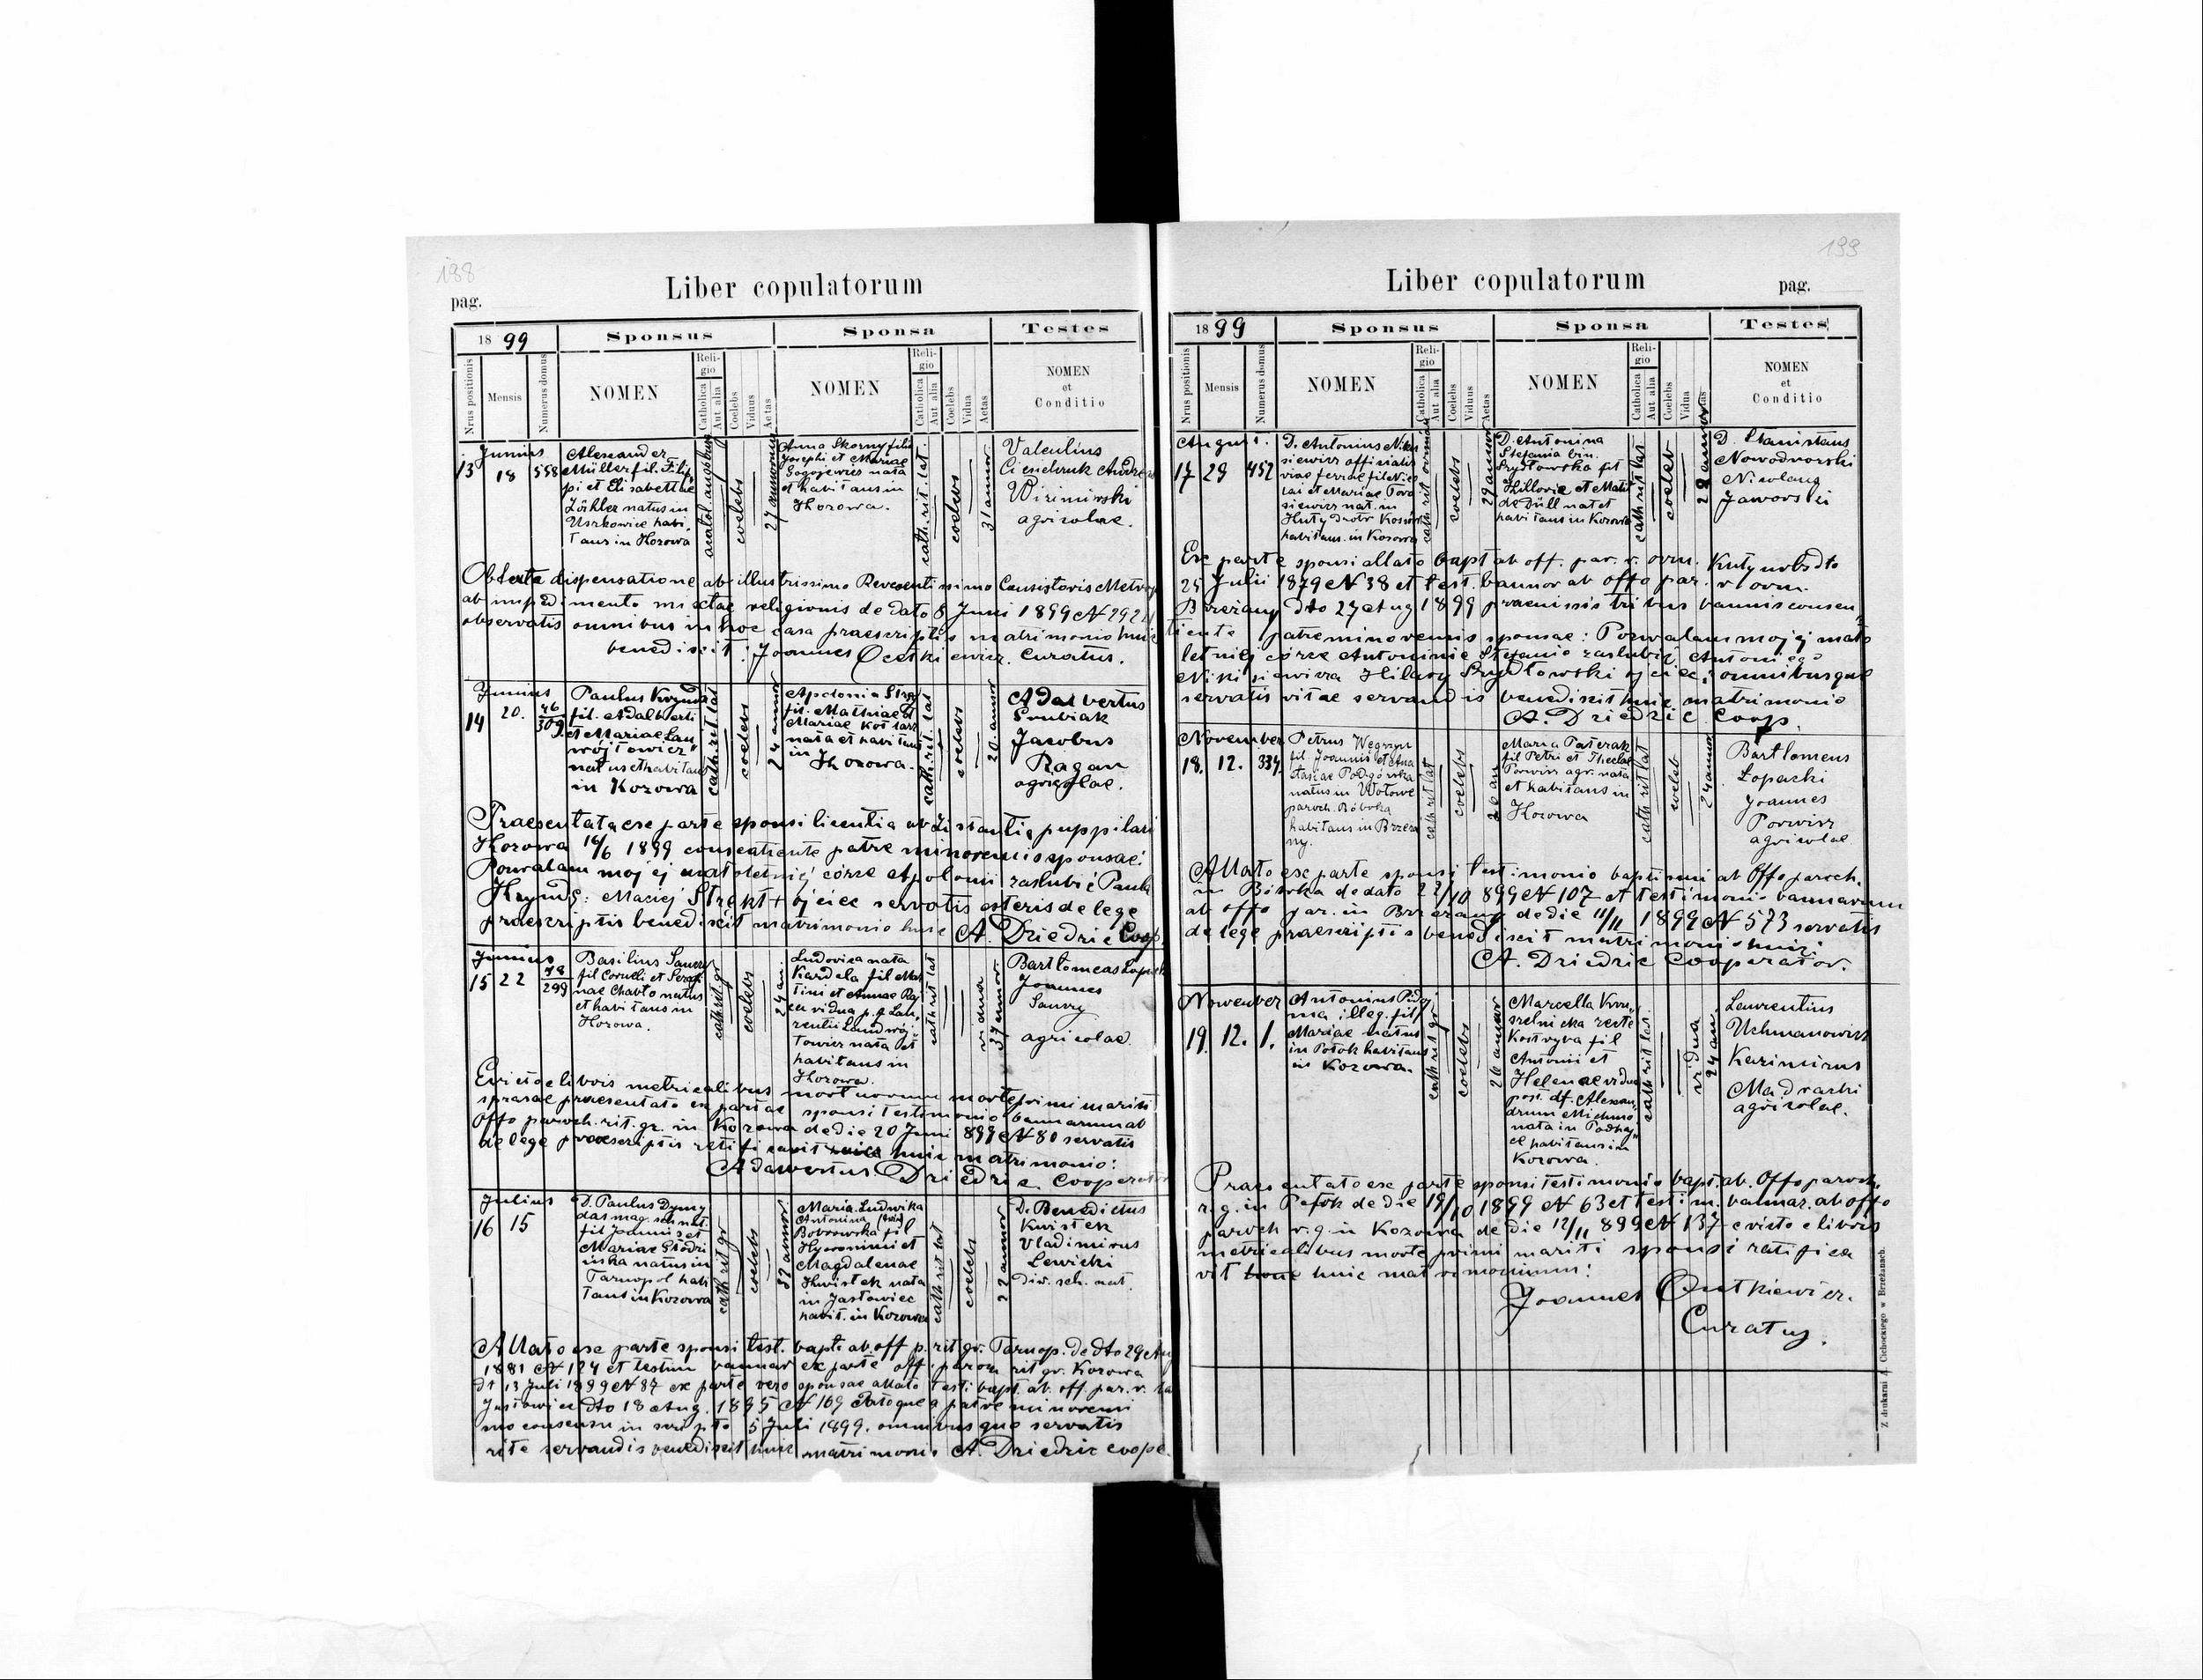 198
Liber copulatorum
pag.
1899
Sponsus
Sponsa
Testes
Nrus positionis
Mensis
Numerus domus
NOMEN
Religio
Catholica
Aut alia
Coelebs
Viduus
Aetas
NOMEN
Religio
Catholica
Aut alia
Coelebs
Vidua
Aetas
NOMEN
et
Conditio
Junius
13 18 558
Alexander
Müller fil. Filip
pi et Elisabethae
natus in
habi
tans in Kozowa
coelebs
27 annorum
Anna Skorny filia
Josephi et Mariae
nata
et habitans in
Kozowa.
cath. rit. lat.
coelebs
31 annor
Valentius
agricolae.
Obtenta dispensatione ab illustrissimo Reverentissimo Consistorio Metrop
ab impedimento mixtae religionis de dato 8 Juni 1899 N 292
observatis omnibus in hoc casa praescriptis matrimonio huic
benedixit: Joannes curatus.
Junius
14 20. 46
309
Paulus
fil. Adalberti
et Mariae Lan
wójtowicz
natus et habitans
in Kozowa
cath. rit lat
coelebs
24 annor
Apolonia
fil. Mathiae et
Mariae
nata et habitans
in Kozowa.
cath. rit. lat
coelebs
20. annor
Adalbertus
Jacobus
Ragan
agricolae.
Praesentata ex parte sponsi licentia ab instantia puppilari
Kozowa 16/6 1899 consentiente patre minorennis sponsae:
Pozwalam mojéj małoletniéj córce Apolonii zaslubić Pawła
Maciej + ojciec servatis ceteris de lege
praescriptis benedixit matrimonio huic A. Dziedzic Coop.
Junius
15 22 78
299
Basilius
fil Corneli et
nae natus
et habitans in
Kozowa.
cath. rit gr
coelebs
24 an.
Ludovica nata
Kardela fil Mar
tini et Annae
vidua p. d Lau
rentii Landwój
towicz nata et
habitans in
Kozowa.
cath rit lat
vidua
37 annor
Bartlomeas
Joannes
agricolae.
e libris metricalibus mortuorum morte primi mariti
praesentato ex partae sponsi testimonio bannarum ab
Offo paroch. rit. gr. in Kozowa de die 20 Juni 899 N 80 servatis
de lege praescriptis ratificavit huic matrimonio:
Adawertus Dziedzic Cooperator
Julius
16 15
D. Paulus Dymy
das mag. sch nat.
fil Joannis et
Mariae
natus in
Tarnopol habi
tans in Kozowa
cath rit gr
coelebs
annor
Maria Ludwika
Antonina
Bobrowska fil
Hyeronimi et
Magdalenae
Kwistek nata
in Jasłowiec
habit. in Kozowa
cath rit lat
coelebs
22 annor
D. Benedictus
Kwistek
Vladimirus
Lewicki
dir. sch. nat.
Allato ex parte sponsi test. bapti ab. off p. rit gr. Tarnop. de dto 29 Aug
1881 N 124 et testim bannar ex parte off. paroch rit gr. Kozowa
dt 13 Juli 1899 N 87 ex parte vero sponsae allato testi bapt. ab. off. par. r. la
dto 18 Aug. 1895 N 169 a patre minorenni
consensu in scripto 5 Juli 1899. omnibus que servatis
rite servandis benedixit huic matrimonio A. Dziedzic coope.
199
Liber copulatorum
pag.
1899
Sponsus
Sponsa
Testes
Nrus positionis
Mensis
Numerus domus
NOMEN
Religio
Catholica
Aut alia
Coelebs
Viduus
Aetas
NOMEN
Religio
Catholica
Aut alia
Coelebs
Vidua
Aetas
NOMEN
et
Conditio
August.
17 29 452
D. Antonius Niki
siewicz officialis
viae ferrae fil Nico
lai et Mariae
siewicz nat. in
Huty
habitans. in Kozowa
coelebs
29 annor
D. Antonina
Stefania bin.
Szydłowska fil
Hillarie et Matil
de Düll nat et
habitans in Kozowa
cath rit lat
coeleb
D. Stanislaus
Nowodworski
Nicolaus
Jaworski
Ex parte sponsi allato bapt ab off. par. r. orm. Kuty
25 Julii 1879 N 38 et test. bannor ab offo par. r orm.
Brzeżany dto 27 Aug 1899 praemissis tribus bannis consen
tiente patre minorennis sponsae: Pozwalam mojéj mało
letniéj córce Antoninie Stefanie zaslubić Antoniego
Nikisiewicza Hilary Szydłowski ojciec; omnibusque
servatis vitae servandis benedixit huic matrimonio
A. Dziedzic Coop.
November
18. 12. 334.
Petrus Węgrzyn
fil Joannis et Ana
stasiae Podgórska
natus in Wołowe
paroch. Bóbrka
habitans in Brzeza
ny.
cath rit lat
coelebs
26 an
Maria Paterak
fil Petri et Theclae
Porwisz agr. nata
et habitans in
Kozowa
cath rit lat
coeleb
24 annor
Bartlomeus
Łopacki
Joannes
Porwisz
agricolae
Allato ex parte sponsi testimonio baptismi ab Offo paroch.
in Bóbrka de dato 22/10 899 N 107 et testimonio bannarum
ab offo par. in Brzezany de die 11/11 1899 N 573 servatis
de lege praescriptis benedixit matrimonio huic:
A. Dziedzic Cooperator.
Nowember
19. 12. 1.
Antonius
illeg. fil
Mariae natus
in Potok habitans
in Kozowa.
cath rit gr.
coelebs
26 annor
Marcella
recte
Kostryba fil
Antonii et
Helenae vidua
post. df. Alexan
drum Michno
nata in Podhaj
et habitans in
Kozowa.
cath rit lat.
vidua
24 an.
Laurentius
Uchmanowicz
Kazimirus
Madraski
agricolae.
Praesentato ex parte sponsi testimonio bapt. ab. Offo paroch.
r. g. in Potok de die 19/10 1899 N 63 et testim. bannar. ab offo
paroch r. g. in Kozowa de die 12/11 899 N 137 evicto e libris
metricalibus morte primi mariti sponsi ratifica
vit huic matrimonium:
Joannes
Curatus.
Z drukarni A. Ciebockiego w Brzeżanach.